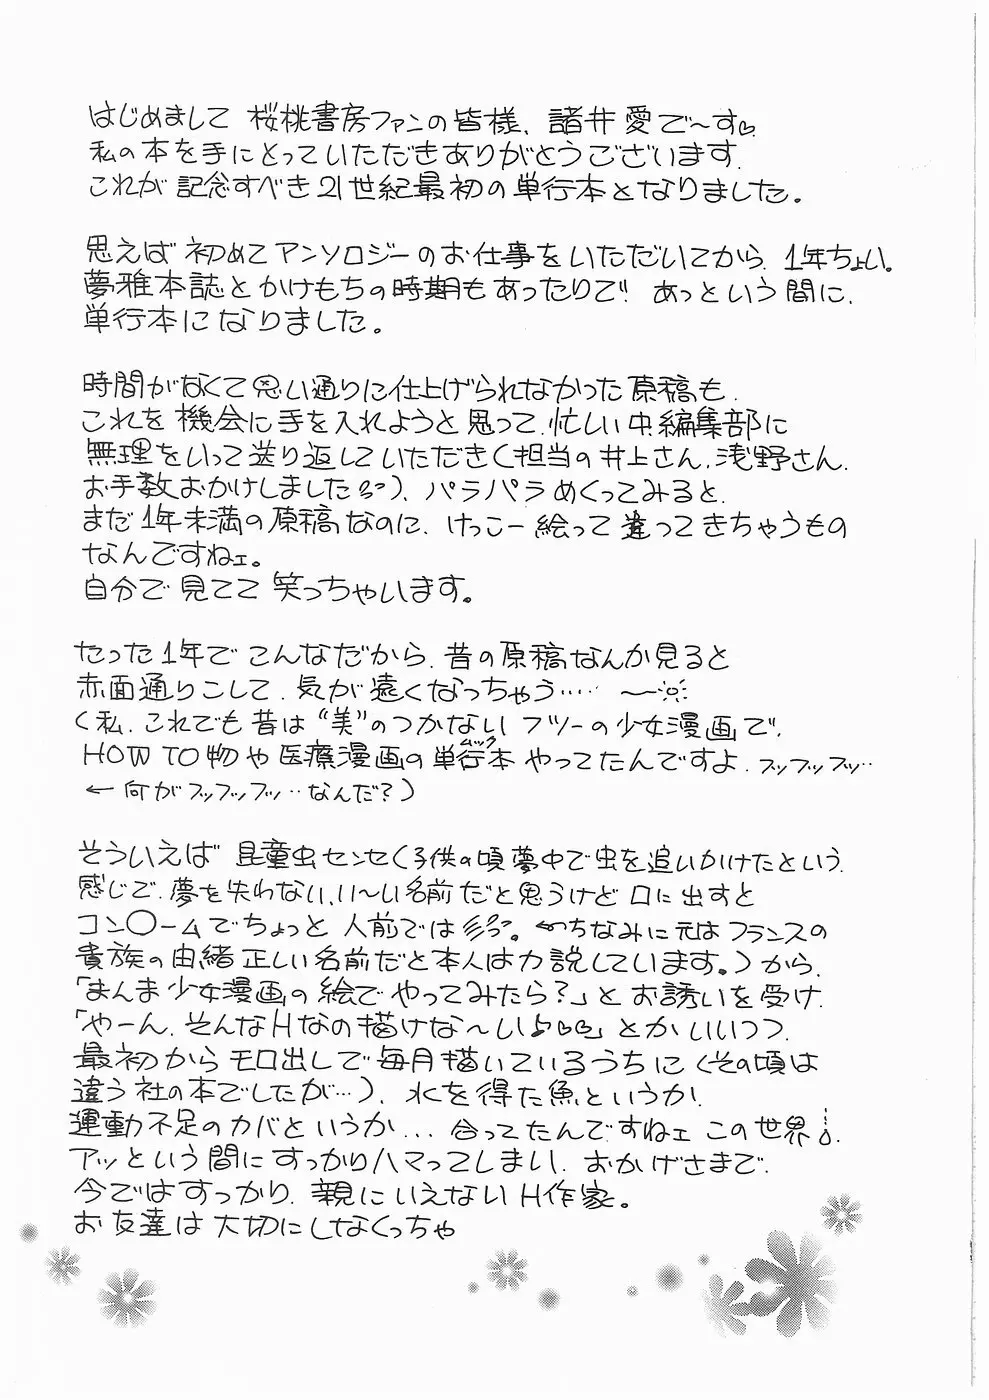 はじめまして 桜桃書房ファンの皆様、諸井愛で〜す♡
私の本を手にとっていただきありがとうございます。
これが記念すべき21世紀最初の単行本となりました。
思えば初めてアンソロジーのお仕事をいただいてから、1年ちょい。
夢雅本誌とかけもちの時期もあったりで、あっという間に、
単行本になりました。
時間がなくて思い通りに仕上げられなかった原稿も、
これを機会に手を入れようと思って、忙しい中編集部に
無理をいって送り返していただき(担当の井上さん、浅野さん、
お手数おかけしました)、パラパラめくってみると、
まだ1年未満の原稿なのに、けっこー絵って違ってきちゃうもの
なんですねェ。
自分で見てて笑っちゃいます。
たった1年でこんなだから、昔の原稿なんか見ると
赤面通りこして、気が遠くなっちゃう……
(私、これでも昔は“美”のつかないフツーの少女漫画で、
HOW TO物や医療漫画の単行本ムックやってたんですよ、ブツブツブツ…
←何がブツブツブツ…なんだ?)
そういえば 昆童虫センセ(子供の頃夢中で虫を追いかけたという
感じで、夢を失わない、い〜い名前だと思うけど口に出すと
コン〇ームでちょっと人前では。←ちなみに元はフランスの
貴族の由緒正しい名前だと本人は力説しています。)から、
「まんま少女漫画の絵でやってみたら?」とお誘いを受け、
「やーん、そんなHなの描けな〜い♪♡♡」とかいいつつ、
最初からモロ出しで毎月描いているうちに(その頃は
違う社の本でしたが…)、水を得た魚というか、
運動不足のカバというか…合ってたんですねェこの世界。
アッという間にすっかりハマってしまい、おかげさまで、
今ではすっかり、親にいえないH作家。
お友達は大切にしなくっちゃ